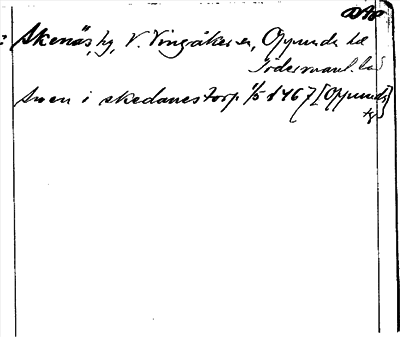 Skenäs, hg, V. Vingåker sn, Oppunda hd
Södermanl. län
Suen i skedanestorp 1/5 1467 [Oppunda
hg]